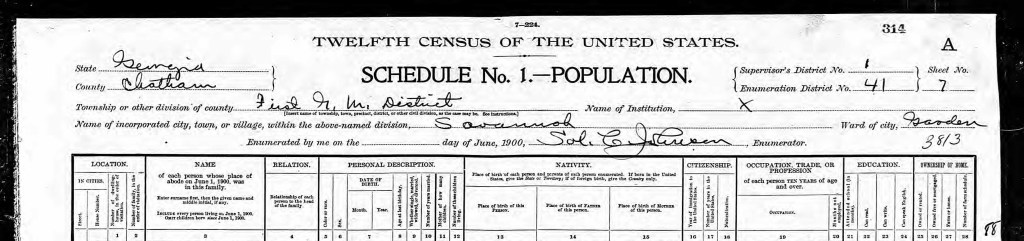 7-224.
314
TWELFTH CENSUS OF THE UNITED STATES.
A
State Georgia
County Chatham
SCHEDULE No. 1.—POPULATION.
Supervisor's District No. 1
Enumeration District No. 41
Sheet No. 7
Township or other division of county First G. M. District Name of Institution, X
[Insert name of township, town, precinct, district, or other civil division, as the case may be. See instructions.]
Name of incorporated city, town, or village, within the above-named division, Savannah Ward of city,
Enumerated by me on the day of June, 1900, Sol. C. Johnson, Enumerator.
38/3
LOCATION. NAME RELATION. PERSONAL DESCRIPTION. NATIVITY. CITIZENSHIP. OCCUPATION, TRADE, OR PROFESSION EDUCATION. OWNERSHIP OF HOME.
IN CITIES.
Street.
House Number.
of each person whose place of abode on June 1, 1900, was in this family.
Enter surname first, then the given name and middle initial, if any.
INCLUDE every person living on June 1, 1900.
OMIT children born since June 1, 1900.
Relationship of each person to the head of the family.
Color or race.
Sex.
DATE OF BIRTH.
Month. Year.
Age at last birthday.
Place of birth of each person and parents of each person enumerated. If born in the United States, give the State or Territory; if of foreign birth, give the Country only.
Place of birth of this PERSON.
Place of birth of FATHER of this person.
Place of birth of MOTHER of this person.
of each person TEN YEARS of age and over.
OCCUPATION.
Can read.
Can write.
Can speak English.
1 2 3 4 5 6 7 8 9 10 11 12 13 14 15 16 17 18 19 20 21 22 23 24 25 26 27 28